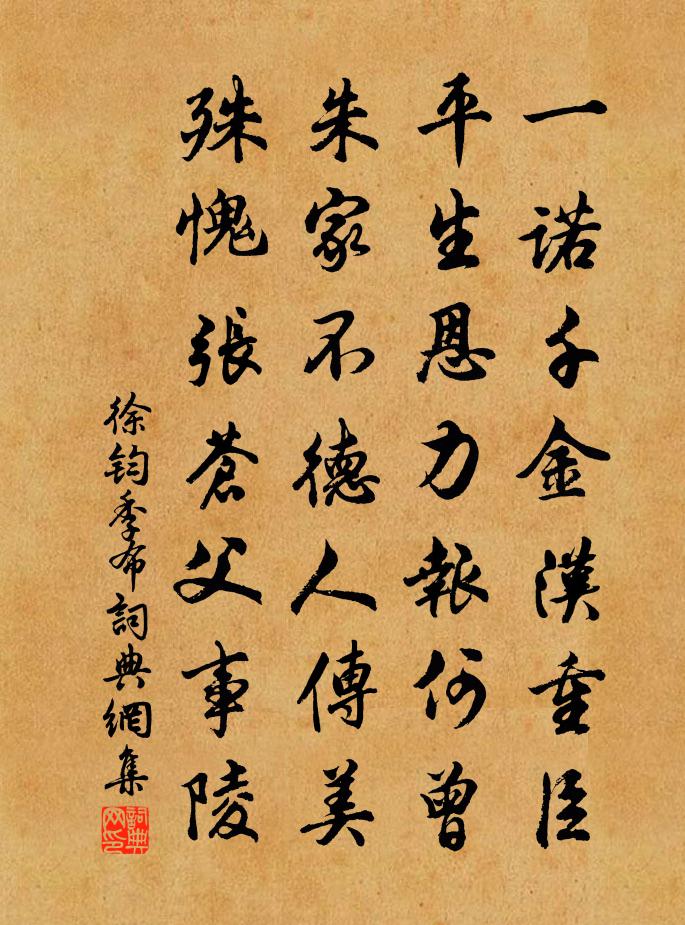 一諾千金漢重臣
平生恩力報何曾
朱家不德人傳美
殊愧張蒼父事陵
徐鈞季布詞典網集
詞典網印